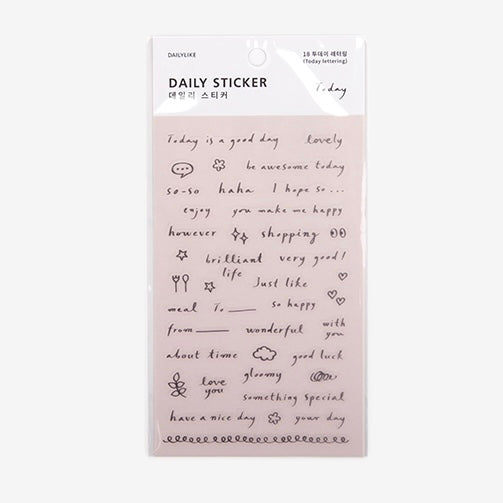 DAILYLIKE
18 투데이 레터링
(Today lettering)
DAILY STICKER
데일리 스티커
Today
Today is a good day lovely
be awesome today
so-so haha I hope so...
enjoy you make me happy
however shopping
brilliant very good!
life
Just like
meal To ____ so happy
from ____ wonderful with you
about time good luck
love you gloomy
something special
have a nice day your day